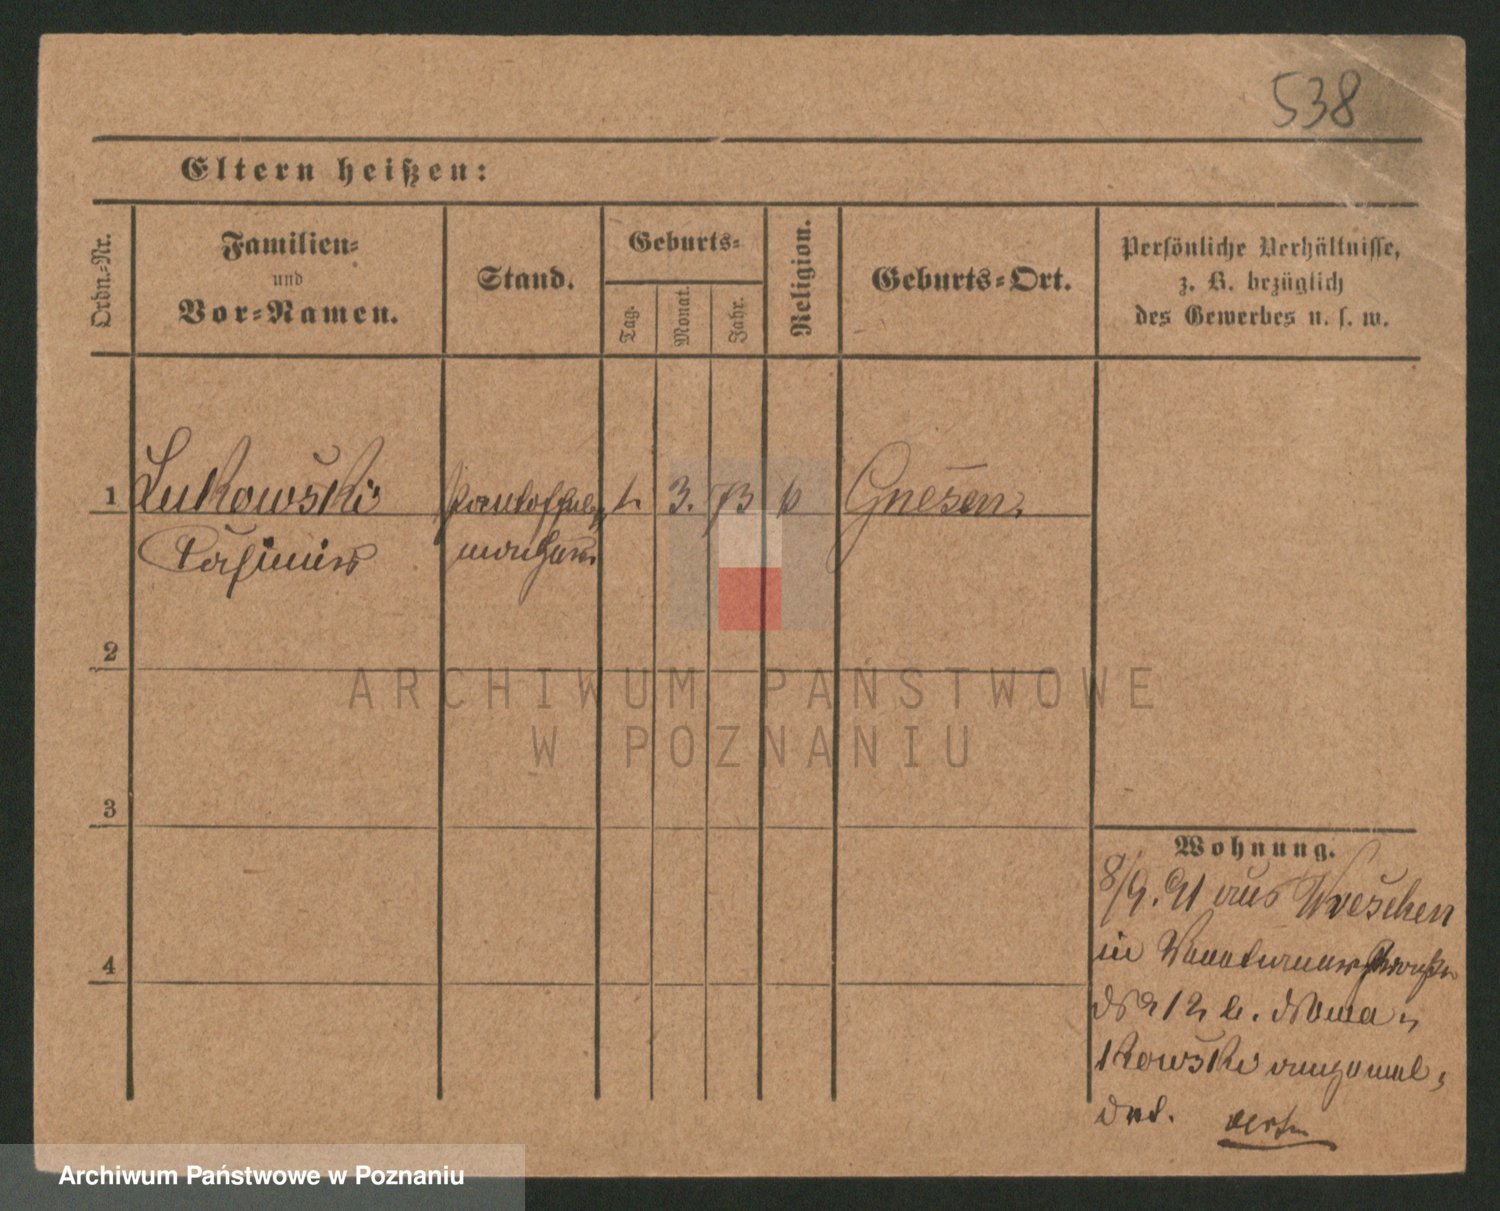 538
Eltern heißen:
Ordn.-Nr.
Familien-
und
Vor-Namen.
Stand.
Geburts-
Tag.
Monat.
Jahr.
Religion.
Geburts-Ort.
Persönliche Verhältnisse,
z. B. bezüglich
des Gewerbes u. s. w.
1
Lukowski
Pantoffel-
3.
73
Gnesen.
Casimir
macher
2
3
4
Wohnung.
8/9. 91 aus Wreschen
in
12 b.
kowski angemel-
det.
ARCHIWUM PAŃSTWOWE
W POZNANIU
Archiwum Państwowe w Poznaniu